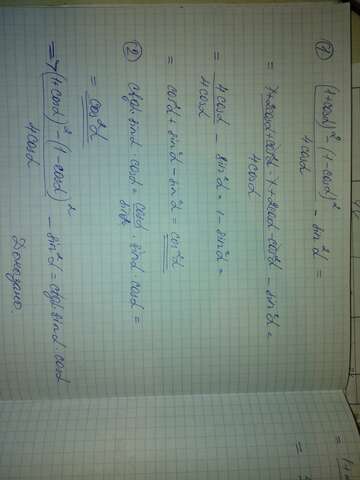 ① ((1+cosα)² - (1-cosα)²)/(4cosα) - sin²α =
= (1+2cosα+cos²α-1+2cosα-cos²α)/(4cosα) - sin²α =
= (4cosα)/(4cosα) - sin²α = 1 - sin²α =
= cos²α + sin²α - sin²α = cos²α
② ctgα·sinα·cosα = (cosα)/(sinα) · sinα·cosα =
= cos²α
=> ((1+cosα)² - (1-cosα)²)/(4cosα) - sin²α = ctgα·sinα·cosα
Доказано.